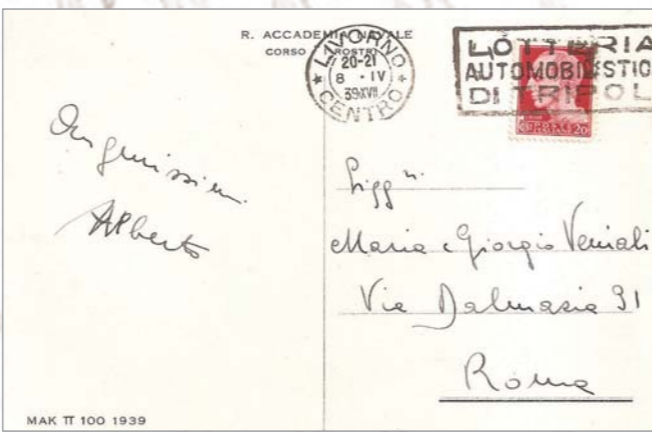 R. ACCADEMIA NAVALE
CORSO ROSTRI
LIVORNO
20-21
8 · IV
39 XVII
CENTRO
LOTTERIA
AUTOMOBILISTIC
DI TRIPOL
20
Auguissimi
Alberto
Sigg ri.
Maria e Giorgio Veniali
Via Dalmazia 31
Roma
MAK π 100 1939